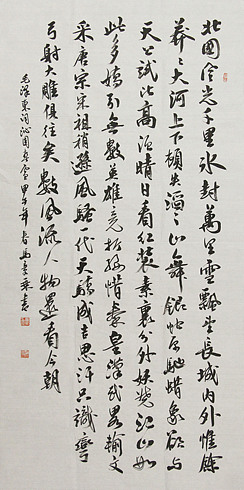 北國風光千里冰封萬里雪飄望長城内外惟餘
莽々大河上下頓失滔々山舞銀蛇原馳蜡象欲与
天公試比高須晴日看紅裝素裹分外妖嬈江山如
此多嬌引無數英雄競折腰惜秦皇漢武略輸文
采唐宗宋祖稍遜風騷一代天驕成吉思汗只識彎
弓射大雕俱往矣數風流人物還看今朝
毛澤東詞沁園春雪甲午年春馬書